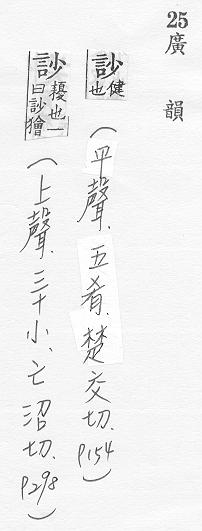 25 廣韻
訬 健也（平聲．五肴．楚交切．P154）
訬 擾也一曰訬獪（上聲．三十小、亡沼切．P298）